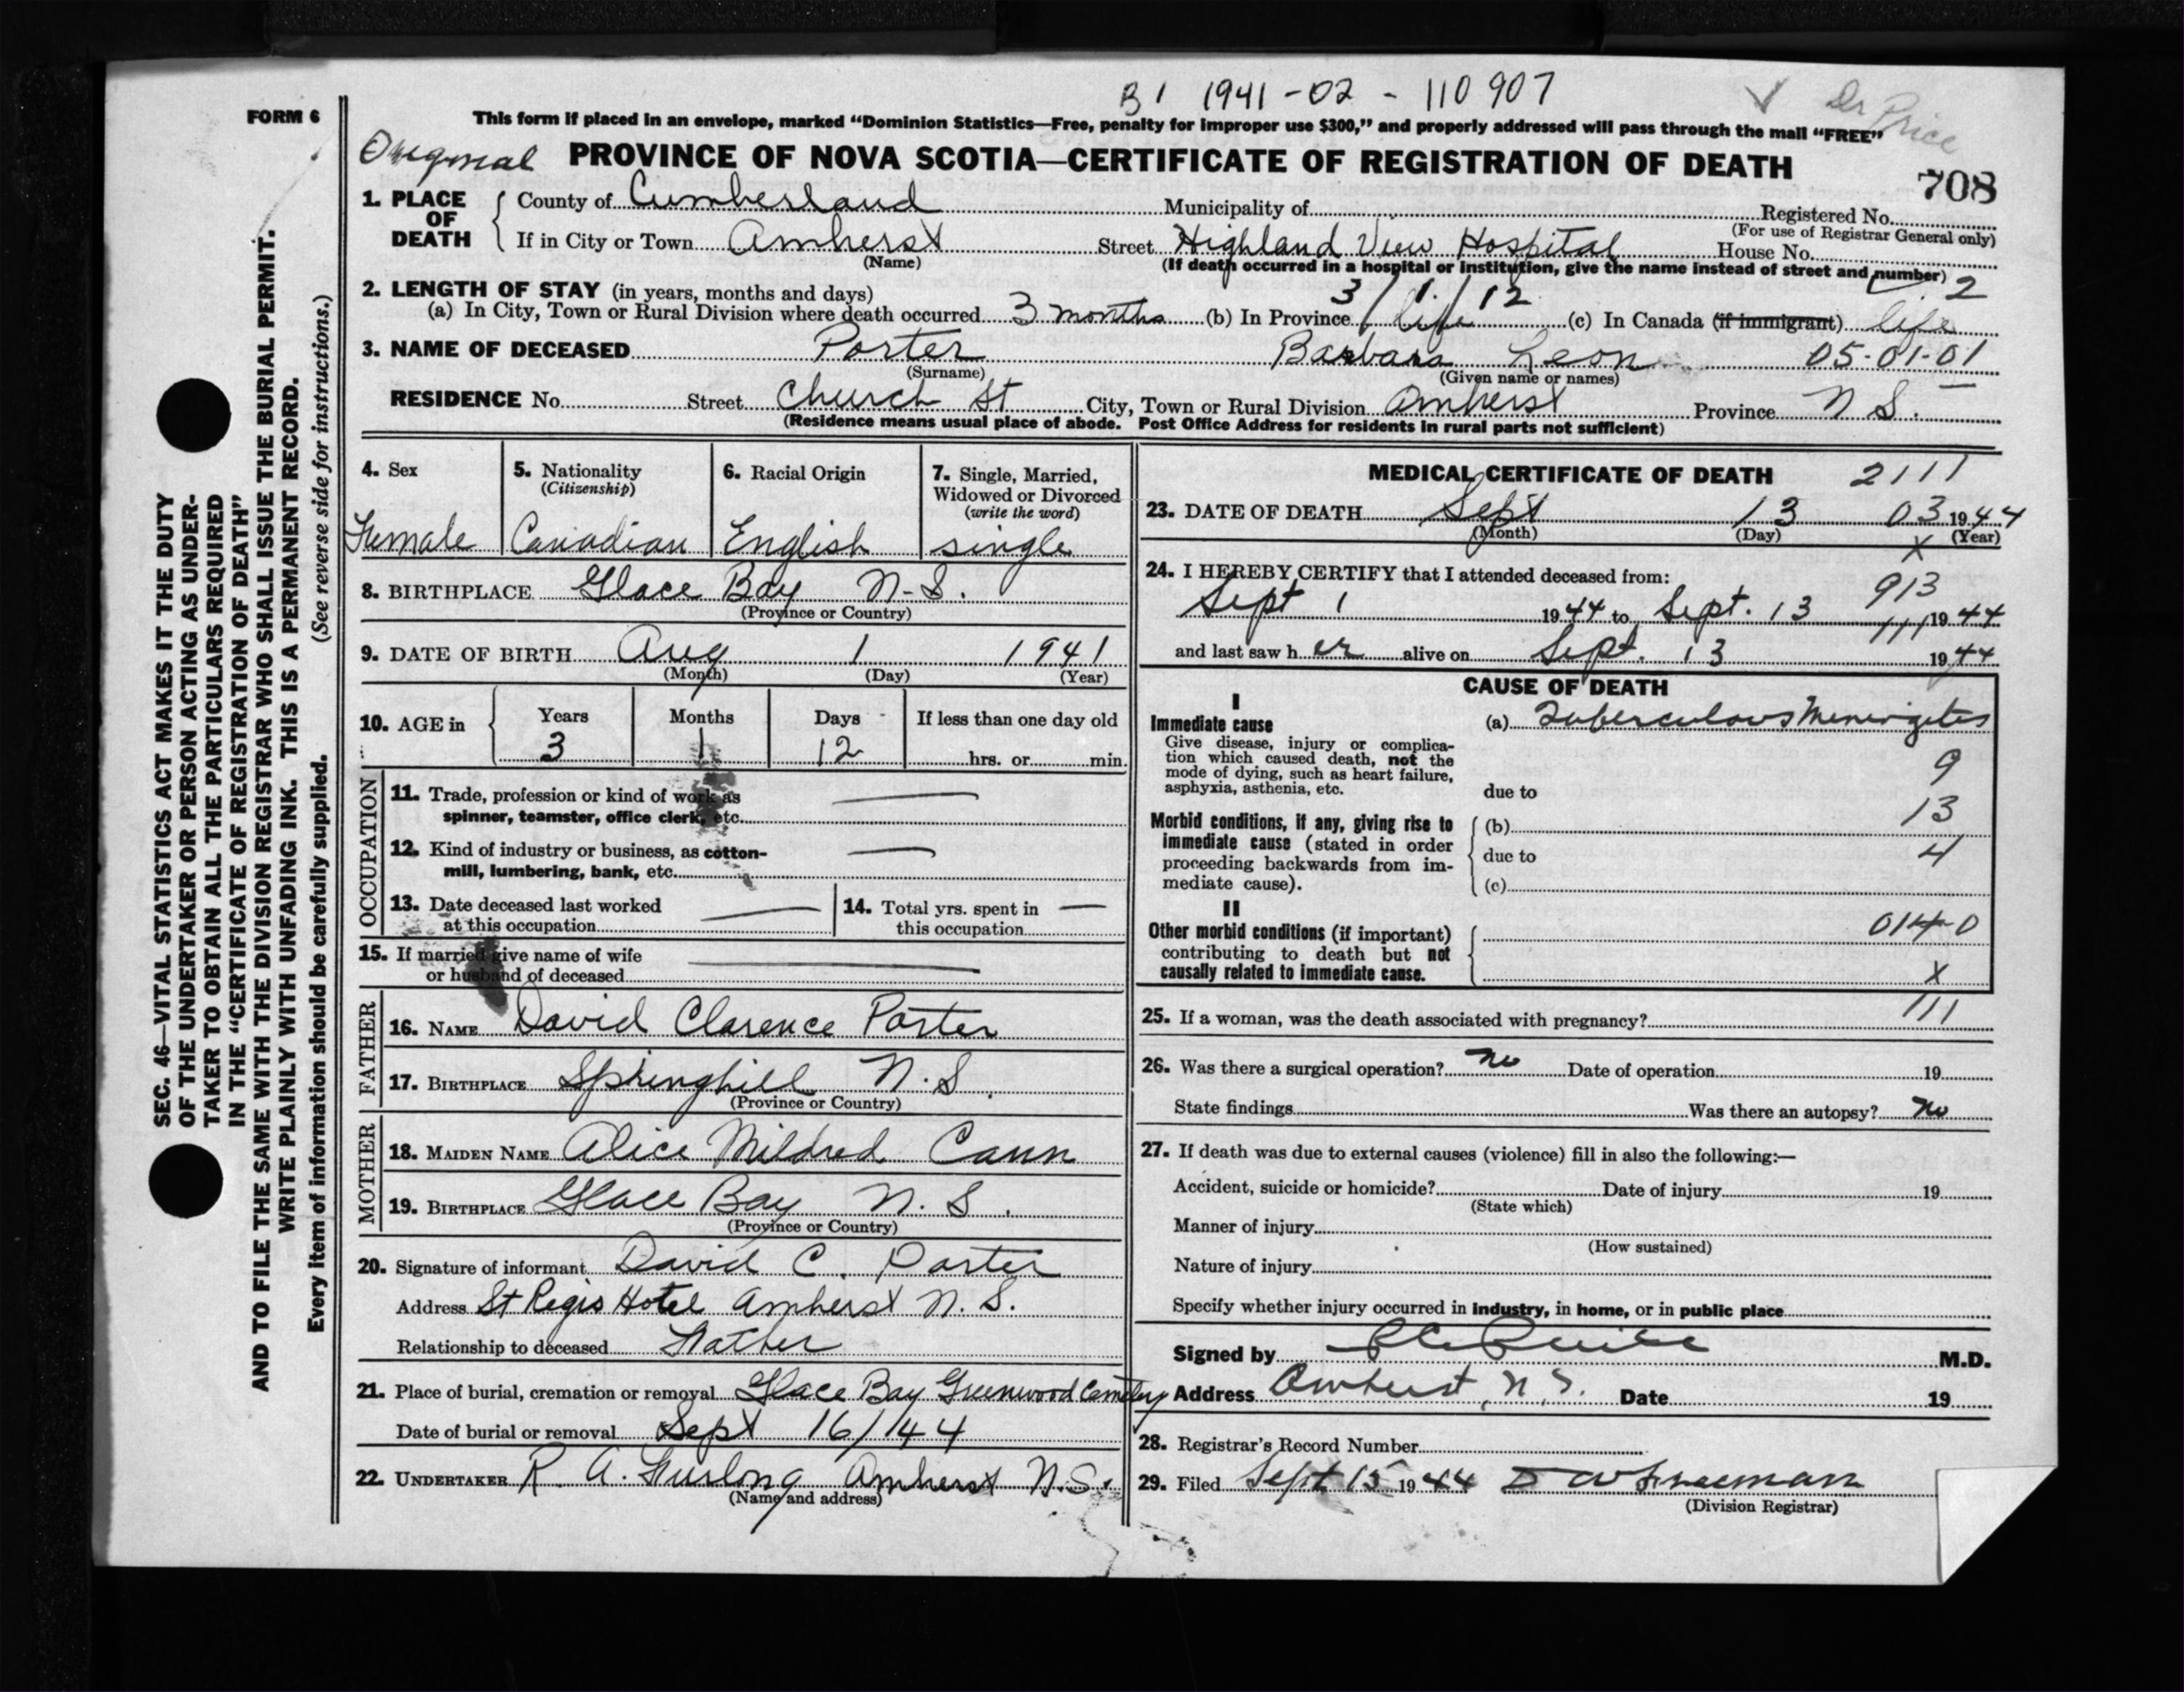 B1 1941-02-110907
Dr Price
FORM 6
This form if placed in an envelope, marked "Dominion Statistics—Free, penalty for improper use $300," and properly addressed will pass through the mail "FREE"
Original PROVINCE OF NOVA SCOTIA—CERTIFICATE OF REGISTRATION OF DEATH
708
1. PLACE OF DEATH
County of Cumberland Municipality of Registered No.
(For use of Registrar General only)
If in City or Town Amherst Street Highland View Hospital House No.
(Name) (If death occurred in a hospital or institution, give the name instead of street and number)
2. LENGTH OF STAY (in years, months and days) 3/1/12 2
(a) In City, Town or Rural Division where death occurred 3 months (b) In Province life (c) In Canada (if immigrant) life
3. NAME OF DECEASED Porter Barbara Leon 05-01-01
(Surname) (Given name or names)
RESIDENCE No. Street Church St City, Town or Rural Division Amherst Province N S.
(Residence means usual place of abode. Post Office Address for residents in rural parts not sufficient)
4. Sex Female
5. Nationality (Citizenship) Canadian
6. Racial Origin English
7. Single, Married, Widowed or Divorced (write the word) single
8. BIRTHPLACE Glace Bay N-S.
(Province or Country)
9. DATE OF BIRTH Aug 1 1941
(Month) (Day) (Year)
10. AGE in Years 3 Months 1 Days 12 If less than one day old hrs. or min.
OCCUPATION
11. Trade, profession or kind of work as spinner, teamster, office clerk, etc.
12. Kind of industry or business, as cotton-mill, lumbering, bank, etc.
13. Date deceased last worked at this occupation
14. Total yrs. spent in this occupation
15. If married give name of wife or husband of deceased
FATHER
16. NAME David Clarence Porter
17. BIRTHPLACE Springhill N.S.
(Province or Country)
MOTHER
18. MAIDEN NAME Alice Mildred Cann
19. BIRTHPLACE Glace Bay N. S.
(Province or Country)
20. Signature of informant David C. Porter
Address St Regis Hotel Amherst N. S.
Relationship to deceased Father
21. Place of burial, cremation or removal Glace Bay Greenwood Cemetery
Date of burial or removal Sept 16/44
22. UNDERTAKER R. A. Furlong Amherst N.S.
(Name and address)
MEDICAL CERTIFICATE OF DEATH 2111
23. DATE OF DEATH Sept 13 03 1944
(Month) (Day) (Year)
X
24. I HEREBY CERTIFY that I attended deceased from:
913
Sept 1 1944 to Sept. 13 1944
111
and last saw her alive on Sept. 13 1944
CAUSE OF DEATH
I
Immediate cause
Give disease, injury or complication which caused death, not the mode of dying, such as heart failure, asphyxia, asthenia, etc.
(a) Tuberculous Meningitis
9
due to
13
Morbid conditions, if any, giving rise to immediate cause (stated in order proceeding backwards from immediate cause).
(b)
due to 4
(c)
II
Other morbid conditions (if important) contributing to death but not causally related to immediate cause.
0140
X
111
25. If a woman, was the death associated with pregnancy?
26. Was there a surgical operation? no Date of operation 19
State findings Was there an autopsy? no
27. If death was due to external causes (violence) fill in also the following:—
Accident, suicide or homicide? Date of injury 19
(State which)
Manner of injury
(How sustained)
Nature of injury
Specify whether injury occurred in industry, in home, or in public place
Signed by M.D.
Address Amherst, N.S. Date 19
28. Registrar's Record Number
29. Filed Sept 15 1944
(Division Registrar)
SEC. 46—VITAL STATISTICS ACT MAKES IT THE DUTY
OF THE UNDERTAKER OR PERSON ACTING AS UNDER-
TAKER TO OBTAIN ALL THE PARTICULARS REQUIRED
IN THE "CERTIFICATE OF REGISTRATION OF DEATH"
AND TO FILE THE SAME WITH THE DIVISION REGISTRAR WHO SHALL ISSUE THE BURIAL PERMIT.
WRITE PLAINLY WITH UNFADING INK. THIS IS A PERMANENT RECORD.
Every item of information should be carefully supplied. (See reverse side for instructions.)